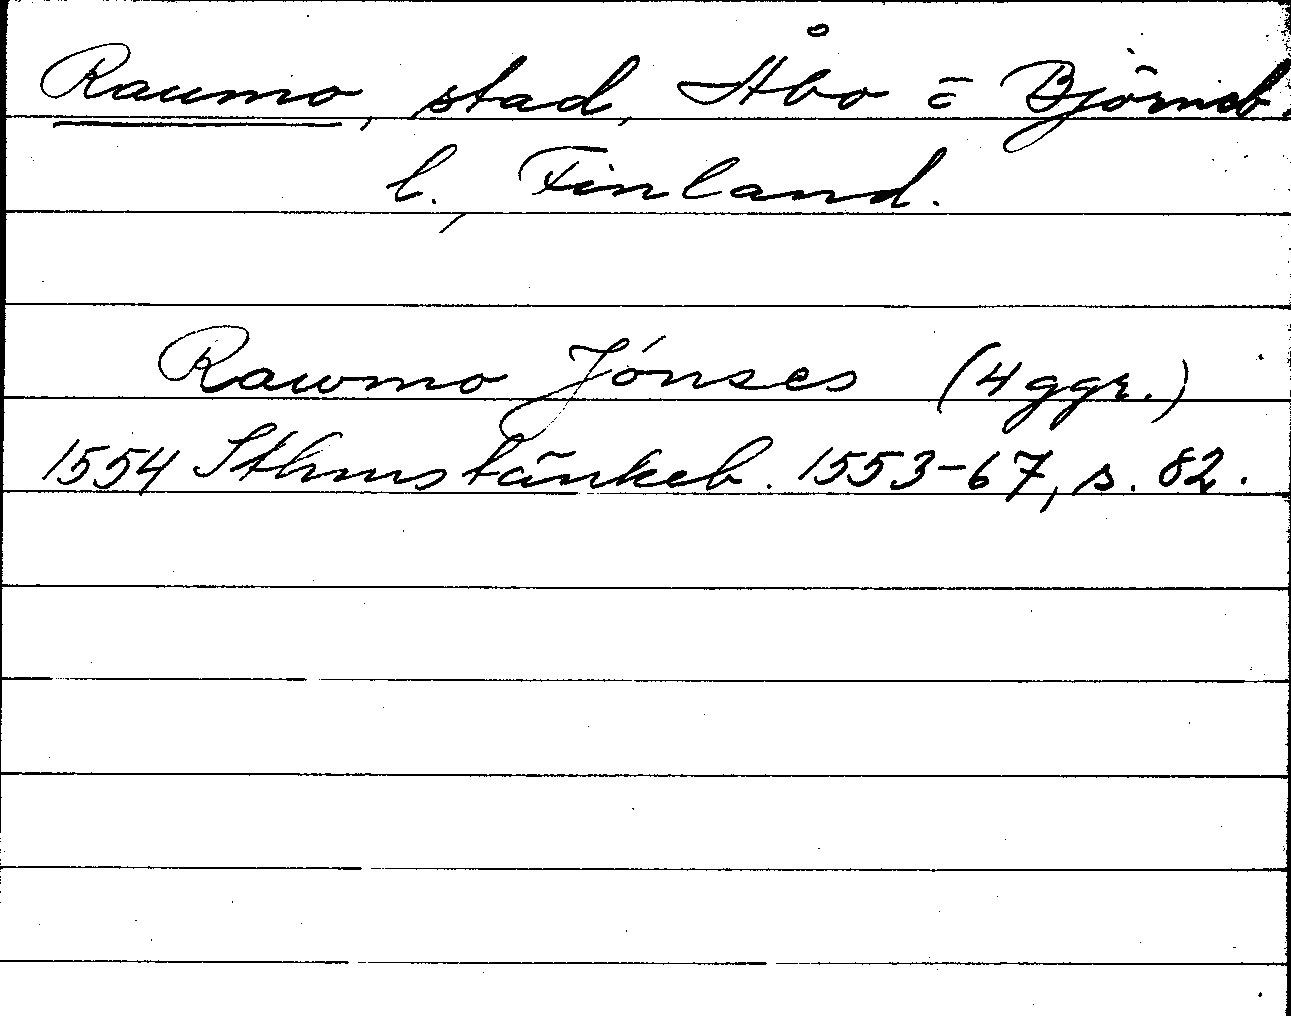 Raumo, stad, Åbo o Björneb.
l., Finland.
Rawmo Jónses (4 ggr.)
1554 Sthms tänkeb. 1553-67, s. 82.